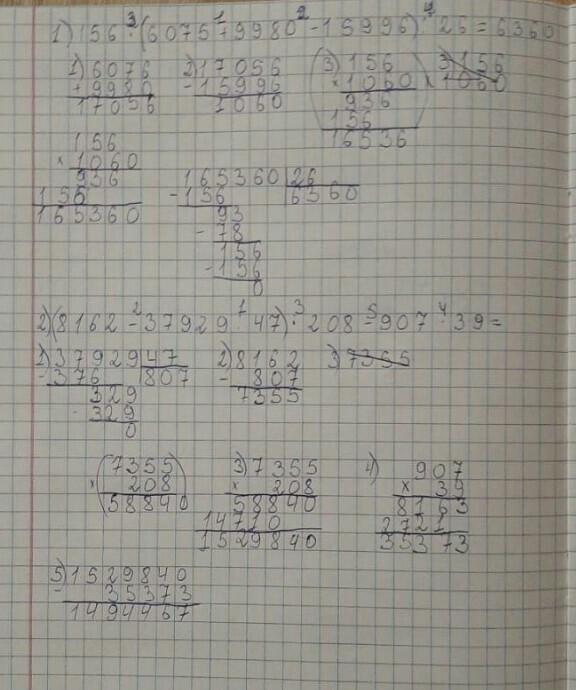 1) 156 · (6075 + 9980 - 15996) : 26 = 6360
3 1 2 4
1) 6076 2) 17056 (3) 156 3) 156
+ 9980 - 15996 × 1060 × 1060
17056 1060 936
156
16536
156
× 1060
936 165360 | 26
156 - 156 6360
165360 93
- 78
156
- 156
0
2) (8162 - 37929 : 47) · 208 - 907 · 39 =
2 1 3 5 4
1) 37929 | 47 2) 8162 3) 7355
- 376 807 - 807
329 7355
- 329
0
(7355) 3) 7355 4) 907
× 208 × 208 × 39
58840 58840 8163
14710 2721
1529840 35373
5) 1529840
- 35373
1494467